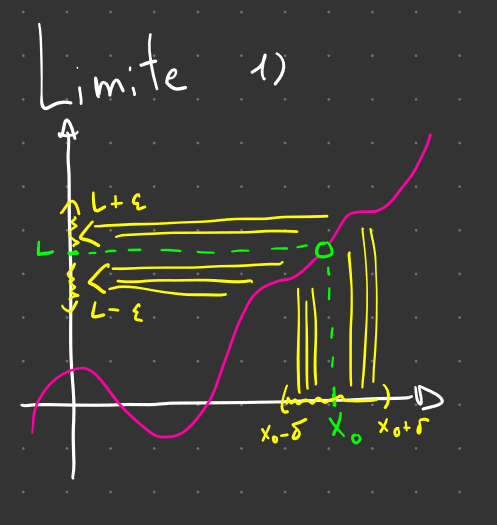 Limite 1)
L+ε
L
L-ε
x₀-δ x₀ x₀+δ